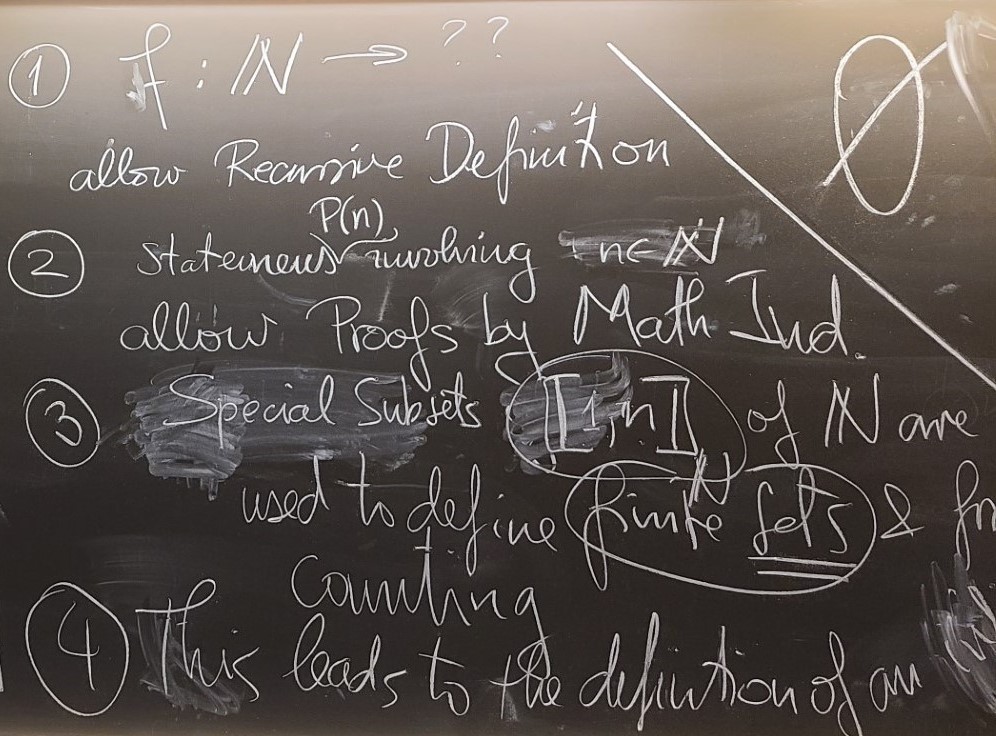 ① f : ℕ → ??
∅
allow Recursive Definition
P(n)
② statements involving n∈ℕ
allow Proofs by Math Ind.
③ Special Subsets [1,n] of ℕ are
ℕ
used to define finite sets &
counting
④ This leads to the definition of an